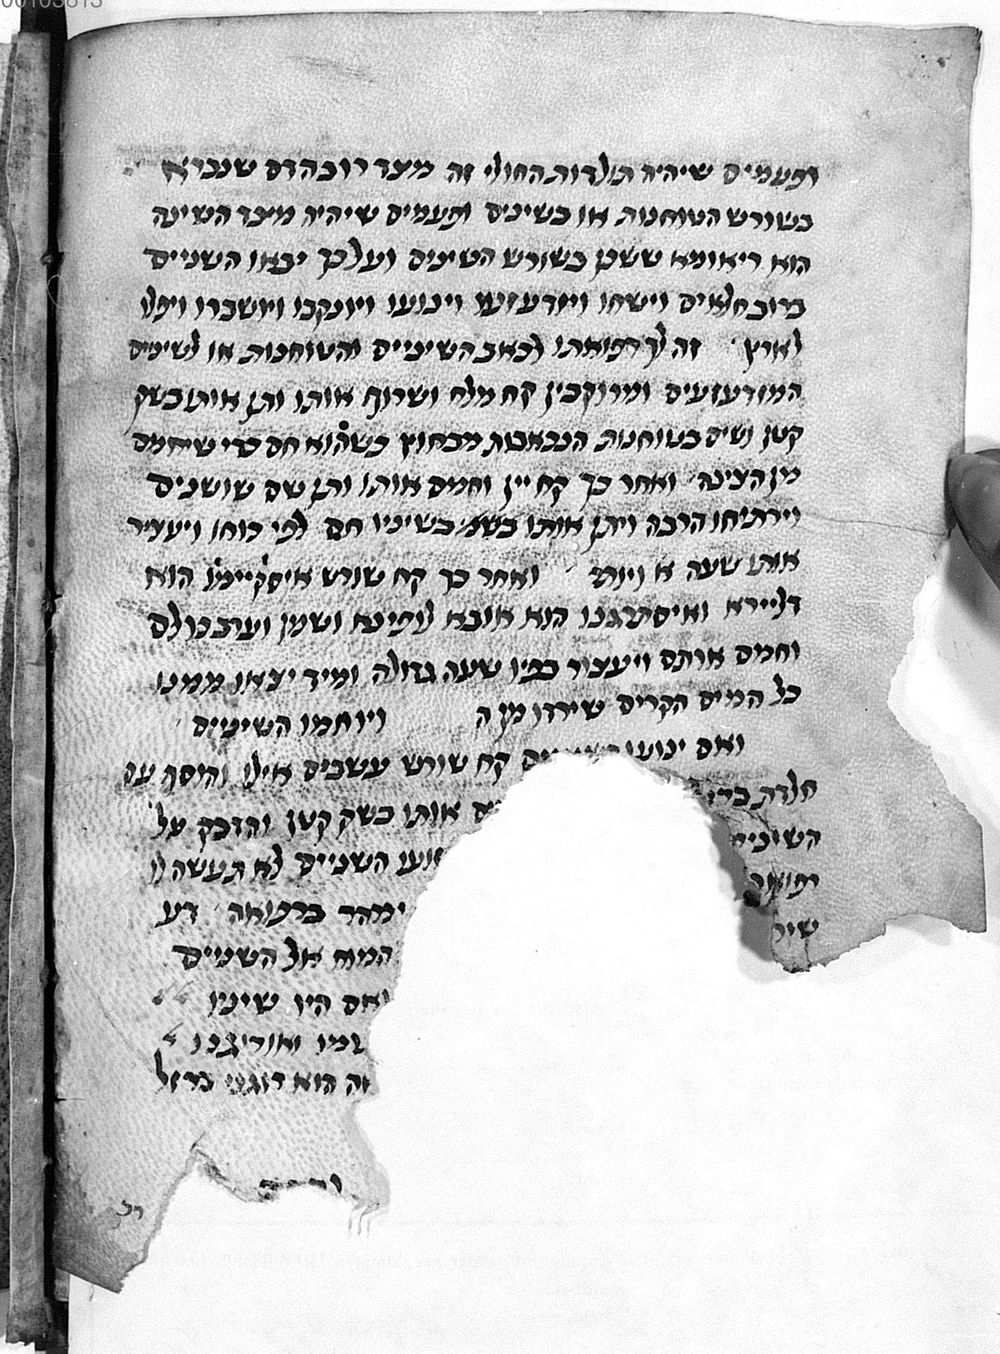 00103813
ופעמים שיהיה תולדות החולי זה מצד רוב הדם שנברא
בשורש הטוחנות או בשינים ופעמים שיהיה מצד השינה
הוא ריאומא ששכן בשורש השינים ועל כך יבאו השניים
ברוב חלאים וישחו ויזדעזעו וינועו וינקבו וישברו ויפלו
לארץ זה לך רפואתו לכאב השיניים והטוחנות או לשינים
המזדעזעים ומרוקבין קח מלח ושרוף אותו ותן אותו בשק
קטן ושים בטוחנות הכואבות מבחוץ כשהוא חם כדי שיחמם
מן הצינה ואחר כך קח יין וחמם אותו ותן שם שושנים
וירתיחו הרבה ויתן אותו בשיניו חם לפי כוחו ויעציר
אותו שעה א ויותר ואחר כך קח שורש הוא
ואיסטרגנו הוא אובא לופינא ושמן וערב כולם
וחמם אותם ויעצור בפיו שעה גדולה ומיד יצאו ממנו
כל המים הקרים שירדו מן ה ויוחמו השינים
ואם ינועו קח שורש עשבים אילו והוסף עם
חלדת אותו בשק קטן והדבק על
השינים השניים לא תעשה לו
רפואה ימהר ברפואה דע
שיר המוח אל השניים
ואם היו שיניו
הוא ברזל